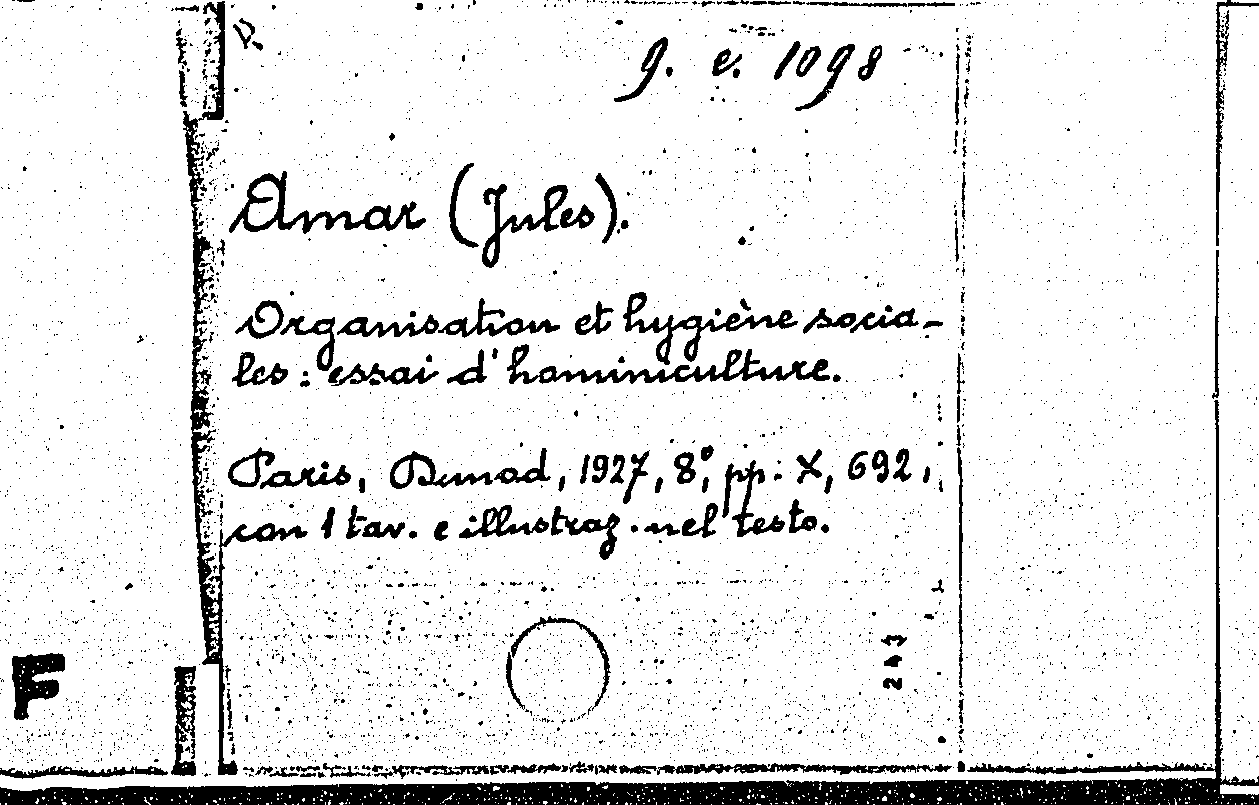 g. e. 1098
Amar (Jules).
Organisation et hygiène socia-
les : essai d'hominiculture.
Paris, Dunod, 1927, 8°, pp. X, 692,
con 1 tav. e illustraz. nel testo.
243
F